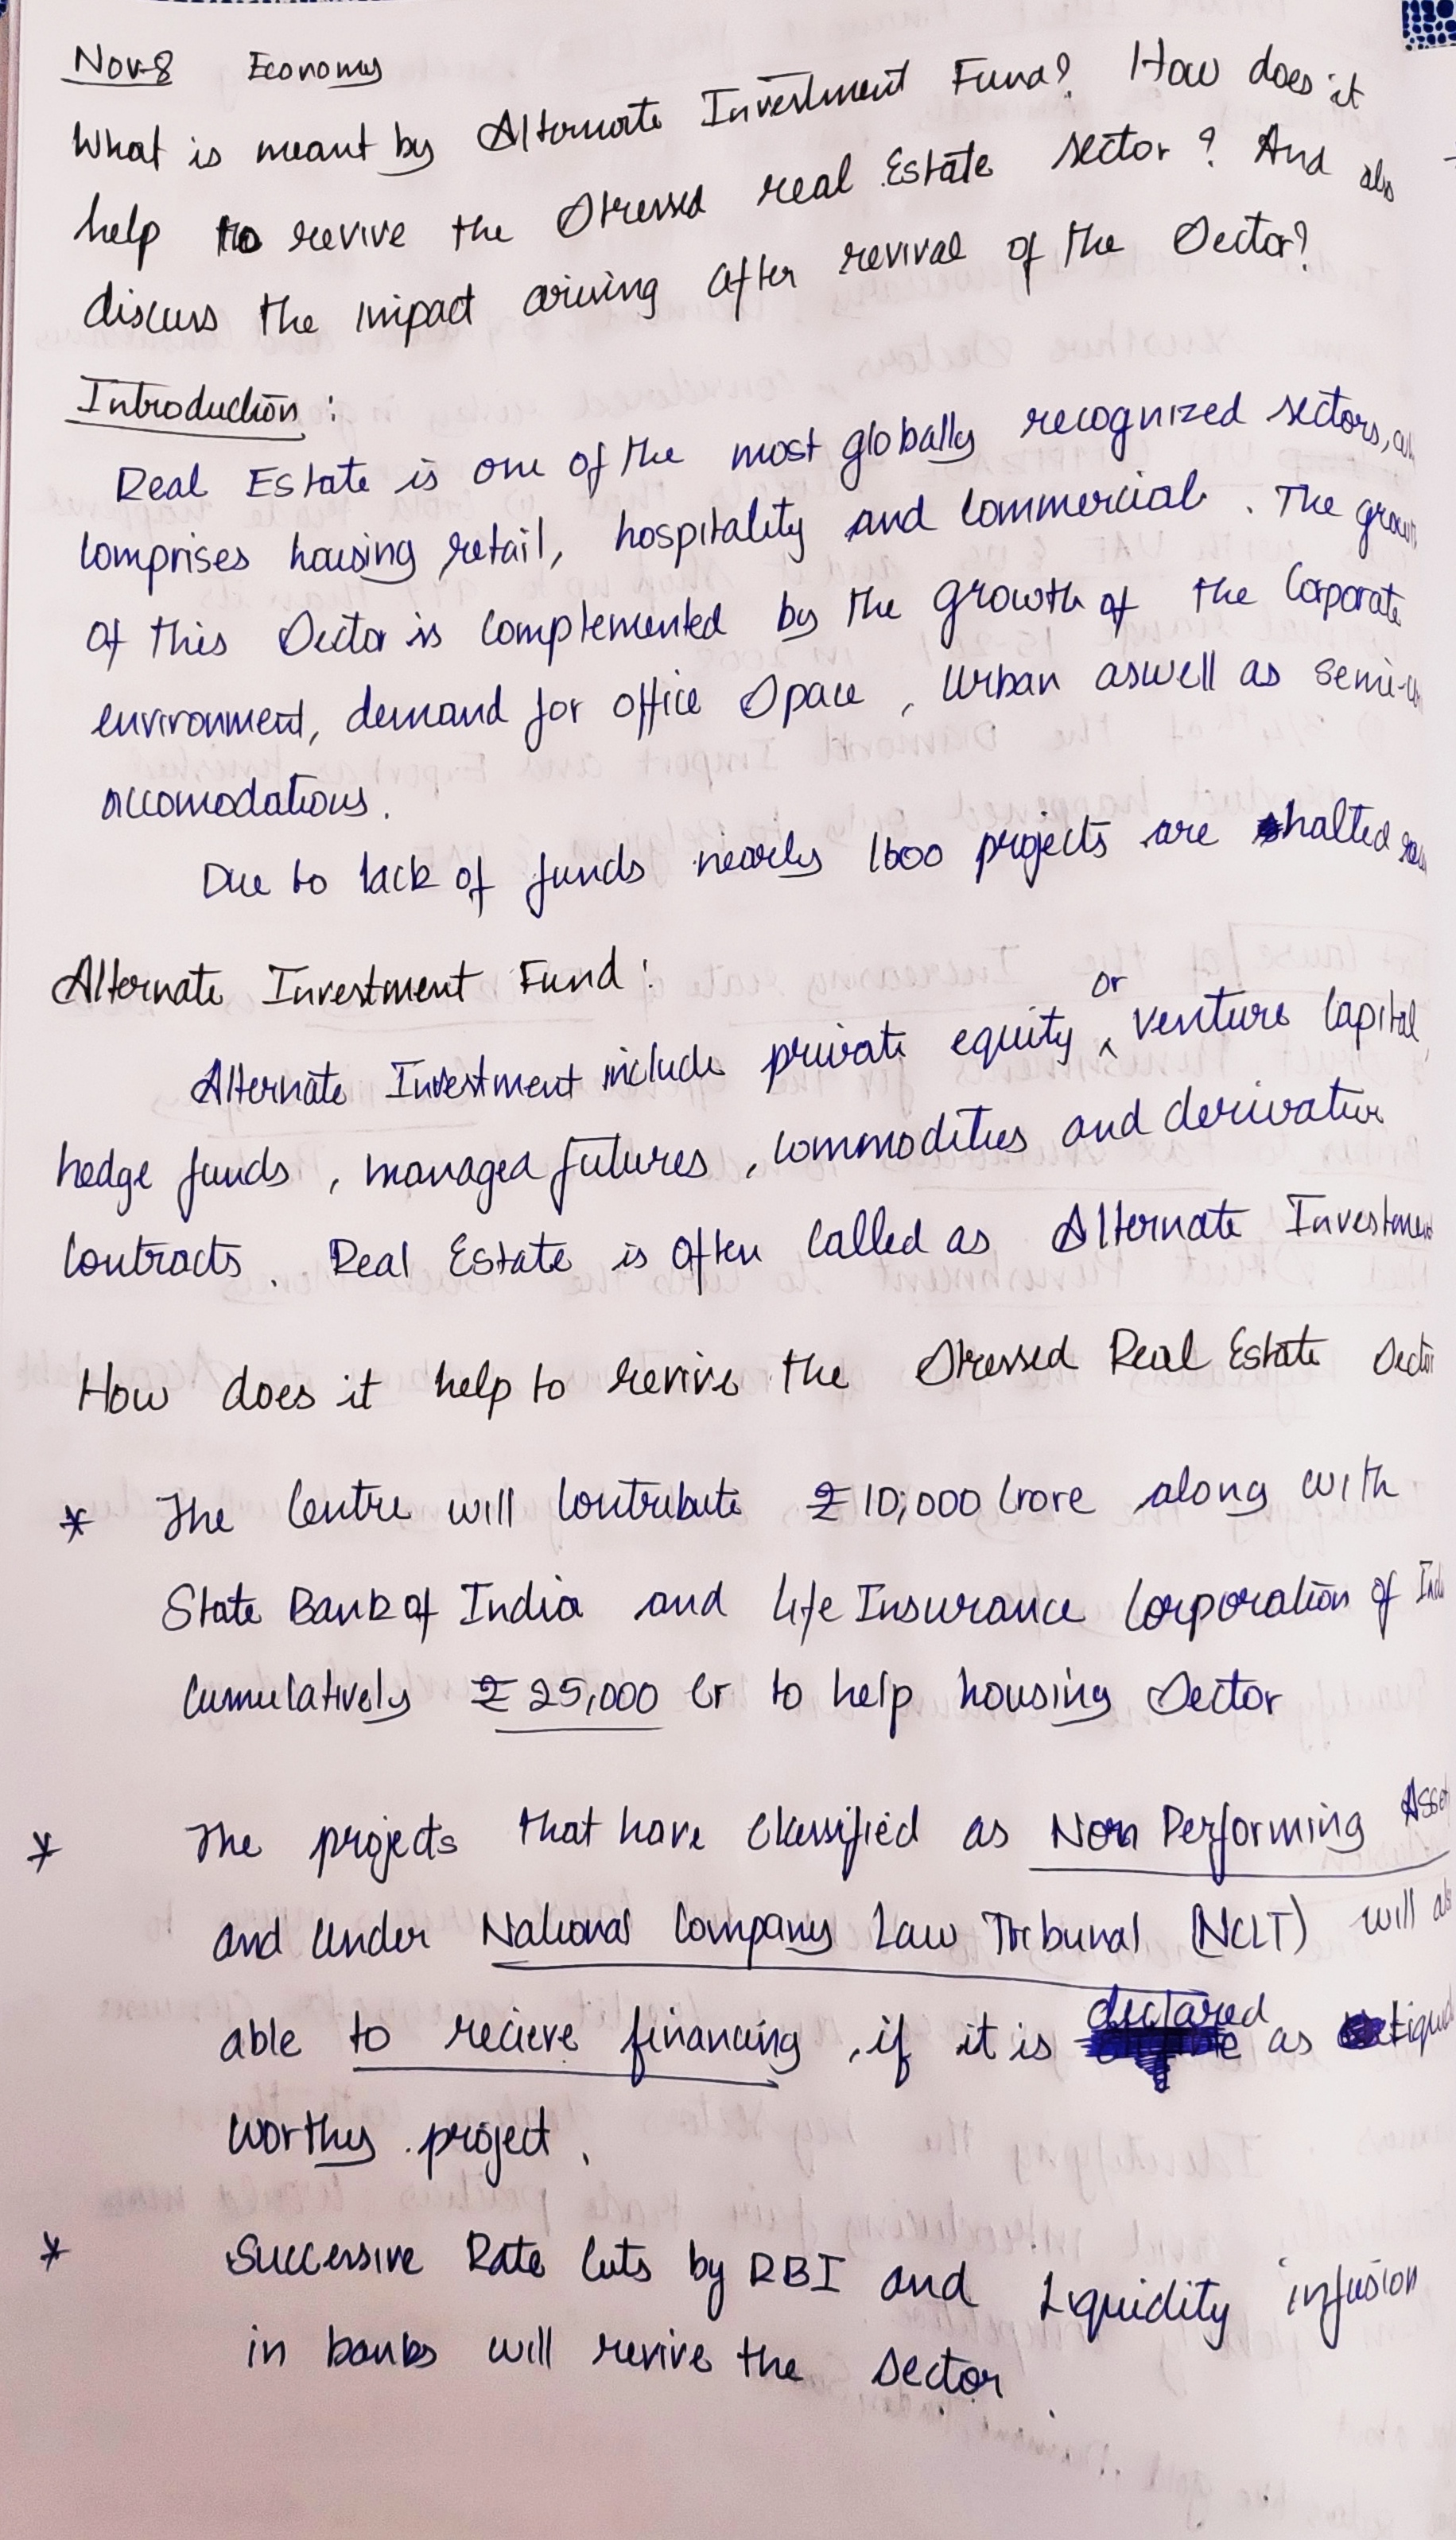 Nov-8 Economy
What is meant by Alternate Investment Fund? How does it
help to revive the Stressed real Estate sector? And also
discuss the impact arising after revival of the Sector?
Introduction :
Real Estate is one of the most globally recognized sectors,
comprises housing retail, hospitality and commercial. The
of this Sector is complemented by the growth of the Corporate
environment, demand for office Space, Urban aswell as semi-
accomodations.
Due to lack of funds nearly 1600 projects are halted
Alternate Investment Fund :
Alternate Investment include private equity or venture capital,
hedge funds, managed futures, commodities and derivative
contracts. Real Estate is often called as Alternate Investment
How does it help to revive the Stressed Real Estate Sector
* The Centre will contribute ₹10,000 crore along with
State Bank of India and Life Insurance Corporation of
cumulatively ₹25,000 cr to help housing Sector
* The projects that have classified as Non Performing Asset
and under National Company Law Tribunal (NCLT) will
able to recieve financing, if it is declared as
worthy project.
* Successive Rate cuts by RBI and Liquidity infusion
in banks will revive the sector.